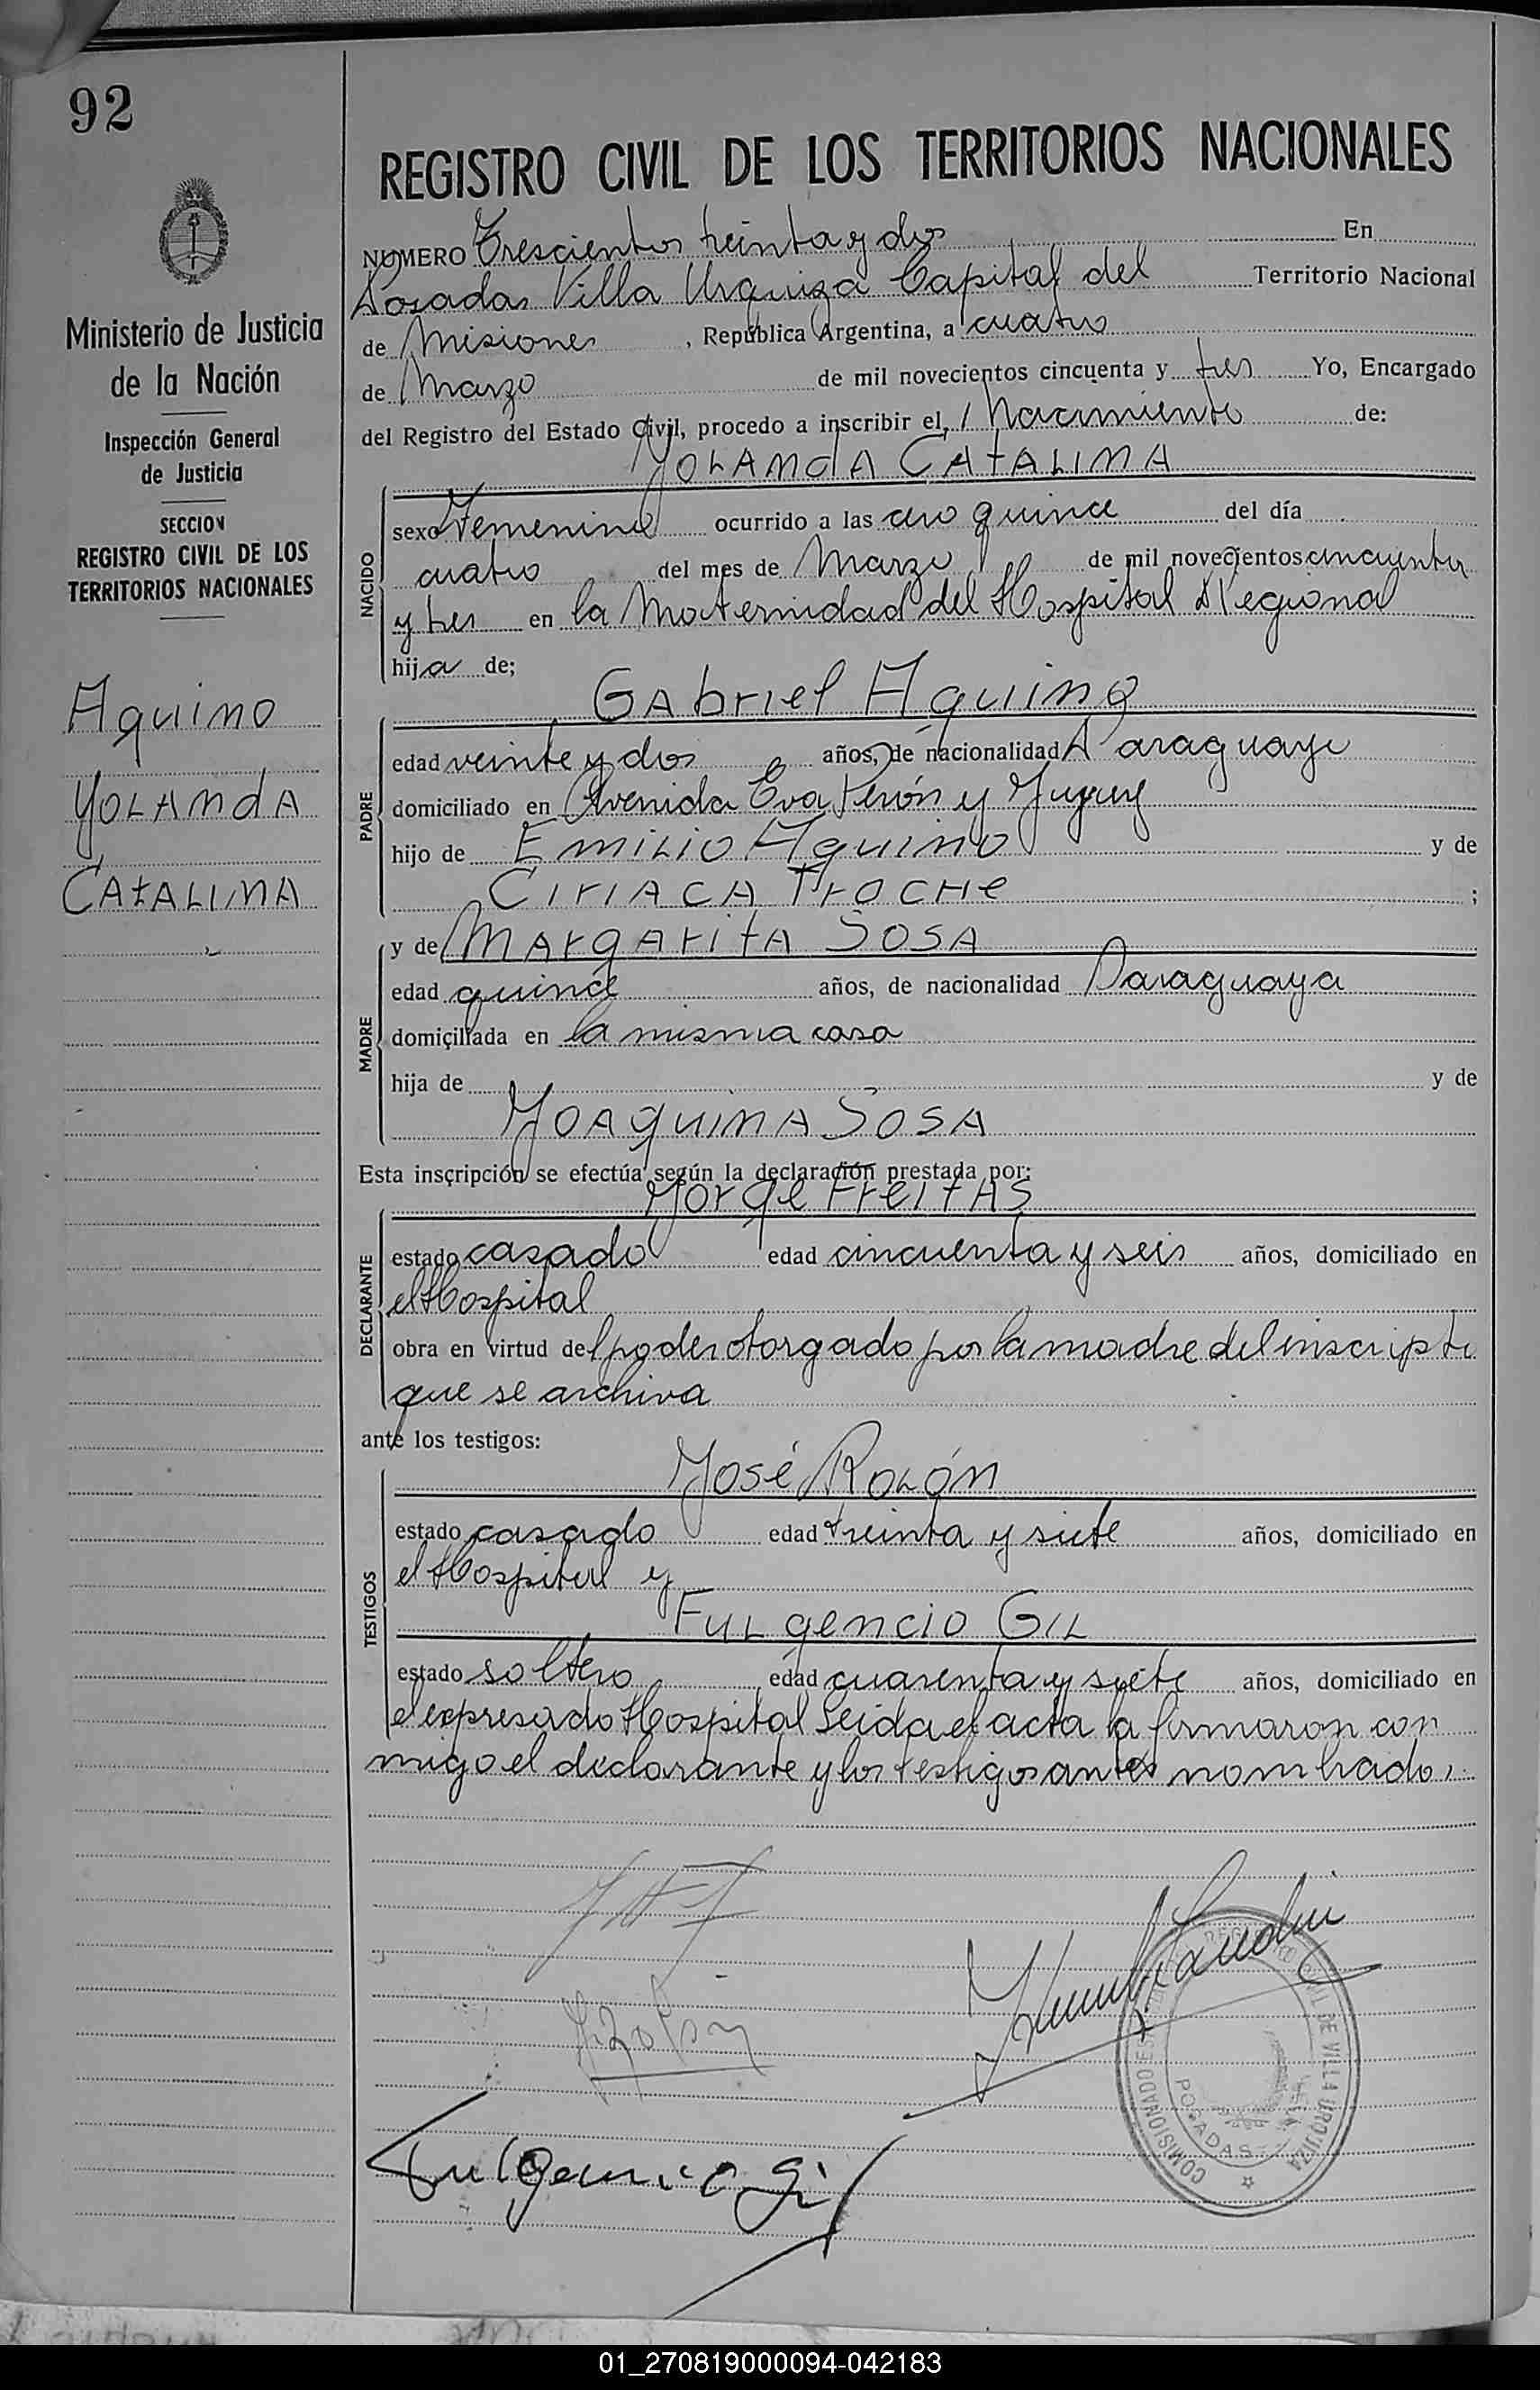 92
REGISTRO CIVIL DE LOS TERRITORIOS NACIONALES
Ministerio de Justicia
de la Nación
Inspección General
de Justicia
SECCION
REGISTRO CIVIL DE LOS
TERRITORIOS NACIONALES
Aquino
YOLANdA
CAtALINA
NUMERO Trescientos treinta y dos En
Posadas Villa Urquiza Capital del Territorio Nacional
de Misiones, República Argentina, a cuatro
de Marzo de mil novecientos cincuenta y tres Yo, Encargado
del Registro del Estado Civil, procedo a inscribir el Nacimiento de:
YOLANdA CAtALINA
NACIDO
sexo Femenino ocurrido a las cero quince del día
cuatro del mes de Marzo de mil novecientos cincuenta
y tres en la Maternidad del Hospital Regional
hija de;
GAbriel Aquino
PADRE
edad veinte y dos años, de nacionalidad Paraguaya
domiciliado en Avenida Eva Perón y Jujuy
hijo de EmiLio Aquino y de
CiriACA TroCHe ;
MADRE
y de MArgAritA SOSA
edad quince años, de nacionalidad Paraguaya
domiciliada en la misma casa
hija de y de
JOAquinA SOSA
Esta inscripción se efectúa según la declaración prestada por:
Jorge FreitAS
DECLARANTE
estado casado edad cincuenta y seis años, domiciliado en
el Hospital
obra en virtud del poder otorgado por la madre del inscripto
que se archiva
ante los testigos:
José RoLón
TESTIGOS
estado casado edad treinta y siete años, domiciliado en
el Hospital y
FuLgencio GiL
estado soltero edad cuarenta y siete años, domiciliado en
el expresado Hospital Leida el acta la firmaron con
migo el declarante y los testigos antes nombrados.
Fulgencio Gil
COMISIONADO REGISTRO CIVIL DE VILLA URQUIZA
POSADAS
01_270819000094-042183